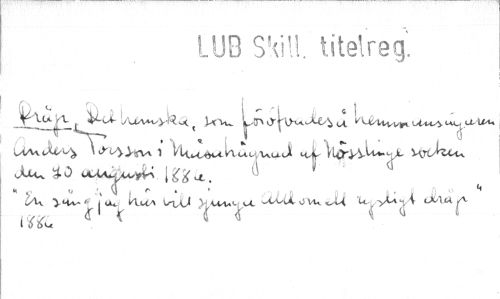 LUB Skill. titelreg.
Dråp, Det hemska, som föröfvades å hemmansägaren
Anders Torsson i hägnad af Nösslinge socken
den 20 augusti 1886.
"En sång jag här vill sjunga Allt om ett rysligt dråp"
1886